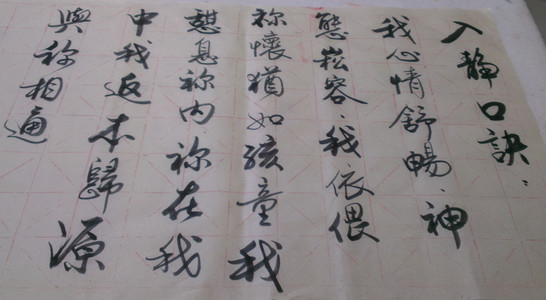 入静口訣：
我心情舒暢、神
態崧容、我依偎
祢懷猶如孩童我
憇息祢内、祢在我
中我返本歸源
與祢相通